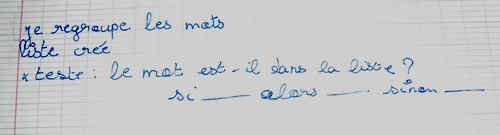 je regroupe les mots
liste crée
* teste : le mot est-il dans la liste ?
si ___ alors ___ sinon ___